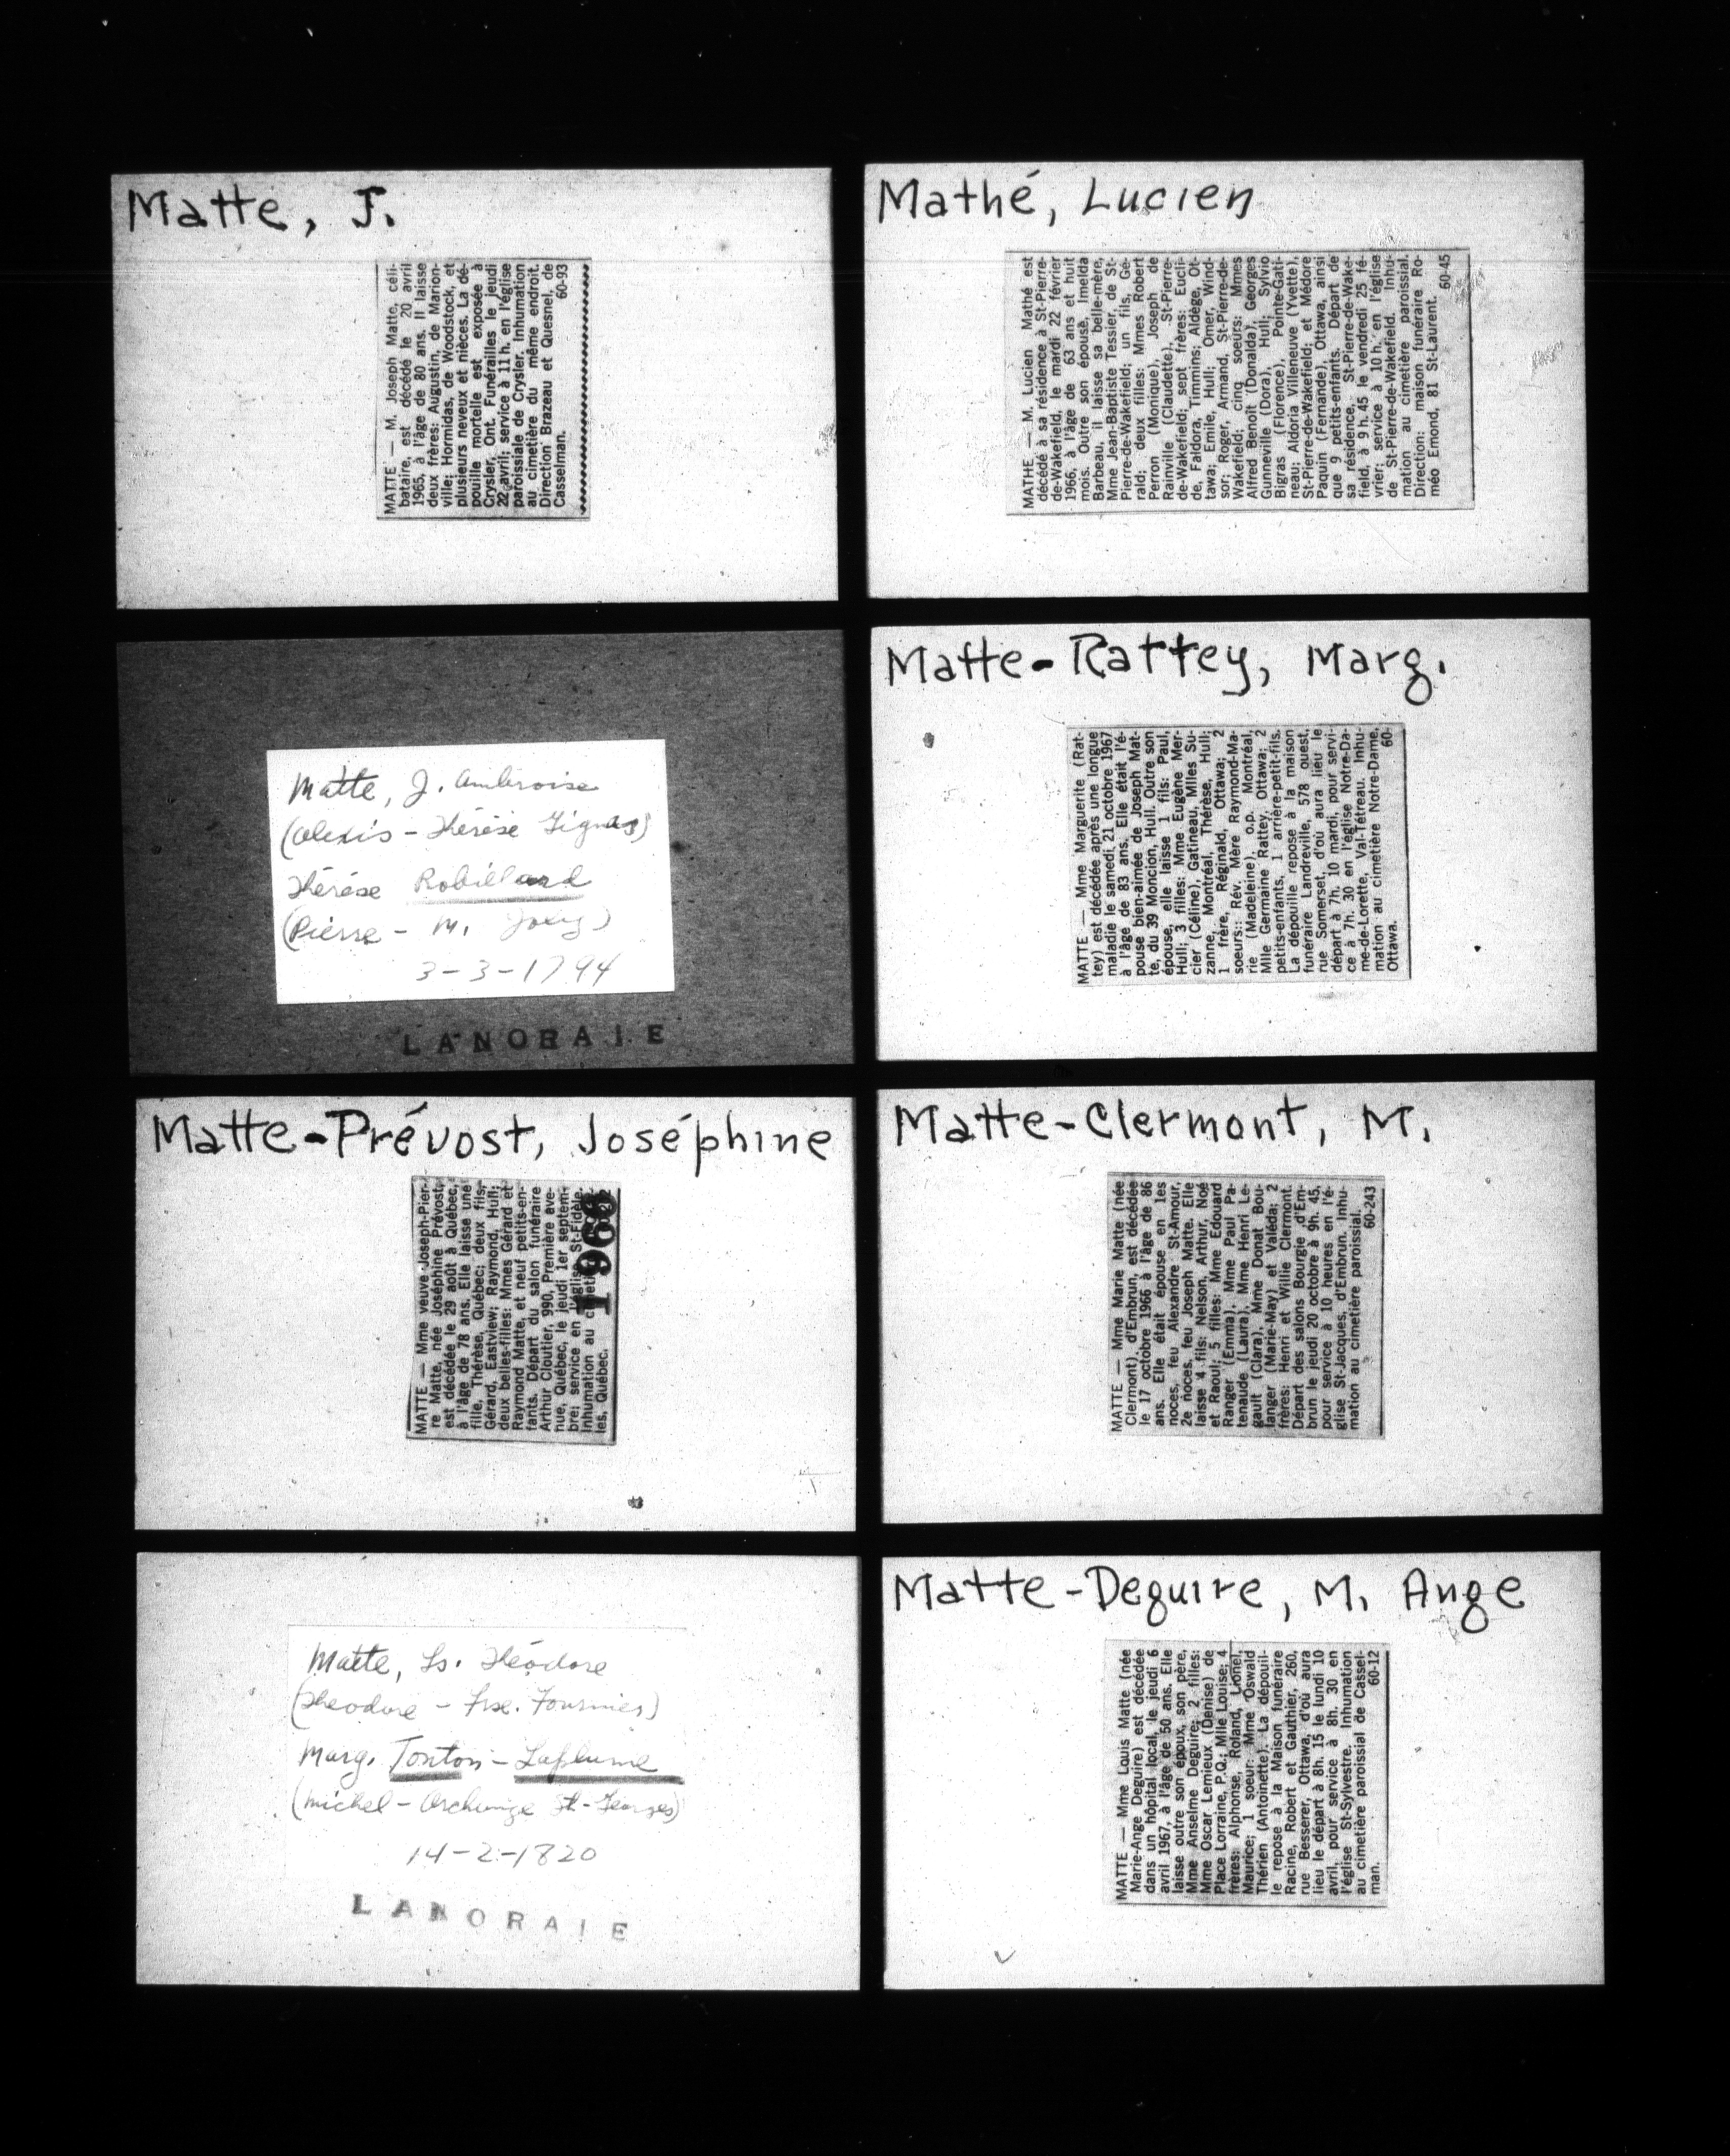 Matte, J.
MATTE — M. Joseph Matte, céli-
bataire, est décédé le 20 avril
1965, à l'âge de 80 ans. Il laisse
deux frères: Augustin, de Marion-
ville; Hormidas, de Woodstock, et
plusieurs neveux et nièces. La dé-
pouille mortelle est exposée à
Crysler, Ont. Funérailles le jeudi
22 avril; service à 11 h. en l'église
paroissiale de Crysler. Inhumation
au cimetière du même endroit.
Direction Brazeau et Quesnel, de
Casselman. 60-93
Mathé, Lucien
MATHE — M. Lucien Mathé est
décédé à sa résidence à St-Pierre-
de-Wakefield, le mardi 22 février
1966, à l'âge de 63 ans et huit
mois. Outre son épouse, Imelda
Barbeau, il laisse sa belle-mère,
Mme Jean-Baptiste Tessier, de St-
Pierre-de-Wakefield; un fils, Gé-
rald; deux filles: Mmes Robert
Perron (Monique), Joseph de
Rainville (Claudette), St-Pierre-
de-Wakefield; sept frères: Eucli-
de, Faldora, Timmins; Aldège, Ot-
tawa; Emile, Hull; Omer, Wind-
sor; Roger, Armand, St-Pierre-de-
Wakefield; cinq soeurs: Mmes
Alfred Benoît (Donalda), Georges
Gunneville (Dora), Hull; Sylvio
Bigras (Florence), Pointe-Gati-
neau; Aldoria Villeneuve (Yvette),
St-Pierre-de-Wakefield; et Médore
Paquin (Fernande), Ottawa, ainsi
que 9 petits-enfants. Départ de
sa résidence, St-Pierre-de-Wake-
field, à 9 h. 45 le vendredi 25 fé-
vrier; service à 10 h. en l'église
de St-Pierre-de-Wakefield. Inhu-
mation au cimetière paroissial.
Direction: maison funéraire Ro-
méo Emond, 81 St-Laurent.
60-45
Matte, J. Ambroise
(Alexis - Thérèse Gignas)
Thérèse Robillard
(Pierre - M. Joly)
3-3-1794
LANORAIE
Matte-Rattey, Marg.
MATTE — Mme Marguerite (Rat-
tey) est décédée après une longue
maladie le samedi, 21 octobre 1967
à l'âge de 83 ans. Elle était l'é-
pouse bien-aimée de Joseph Mat-
te, du 39 Moncion, Hull. Outre son
épouse, elle laisse 1 fils: Paul,
Hull; 3 filles: Mme Eugène Mer-
cier (Céline), Gatineau, Mlles Su-
zanne, Montréal, Thérèse, Hull;
1 frère, Réginald, Ottawa; 2
soeurs:: Rév. Mère Raymond-Ma-
rie (Madeleine), o.p. Montréal,
Mlle Germaine Rattey, Ottawa; 2
petits-enfants, 1 arrière-petit-fils.
La dépouille repose à la maison
funéraire Landreville, 578 ouest,
rue Somerset, d'où aura lieu le
départ à 7h. 10 mardi, pour servi-
ce à 7h. 30 en l'église Notre-Da-
me-de-Lorette, Val-Tétreau. Inhu-
mation au cimetière Notre-Dame,
Ottawa. 60-
Matte-Prévost, Joséphine
MATTE — Mme veuve Joseph-Pier-
re Matte, née Joséphine Prévost,
est décédée le 29 août à Québec,
à l'âge de 78 ans. Elle laisse une
fille, Thérèse, Québec; deux fils,
Gérard, Eastview; Raymond, Hull;
deux belles-filles: Mmes Gérard et
Raymond Matte, et neuf petits-en-
fants. Départ du salon funéraire
Arthur Cloutier, 990, Première ave-
nue, Québec, le jeudi 1er septem-
bre; service en l'église St-Fidèle.
Inhumation au
les, Québec.
1966
Matte-Clermont, M.
MATTE — Mme Marie Matte (née
Clermont), d'Embrun, est décédée
le 17 octobre 1966 à l'âge de 86
ans. Elle était épouse en 1es
noces, feu Alexandre St-Amour,
2e noces, feu Joseph Matte. Elle
laisse 4 fils: Nelson, Arthur, Noé
et Raoul; 5 filles: Mme Edouard
Ranger (Emma), Mme Paul Pa-
tenaude (Laura), Mme Henri Le-
gault (Clara), Mme Donat Bou-
langer (Marie-May) et Valéda; 2
frères: Henri et Willie Clermont.
Départ des salons Bourgie d'Em-
brun le jeudi 20 octobre à 9h. 45,
pour service à 10 heures en l'é-
glise St-Jacques, d'Embrun. Inhu-
mation au cimetière paroissial.
60-243
Matte, Ls. Théodore
(Théodore - Frse. Fournier)
Marg. Tonton-Laplume
(Michel - Archange St-Georges)
14-2-1820
LANORAIE
Matte-Deguire, M. Ange
MATTE — Mme Louis Matte (née
Marie-Ange Deguire) est décédée
dans un hôpital local, le jeudi 6
avril 1967, à l'âge de 50 ans. Elle
laisse outre son époux, son père,
Mme Anselme Deguire; 2 filles:
Mme Oscar Lemieux (Denise) de
Place Lorraine, P.Q.; Mlle Louise; 4
frères: Alphonse, Roland, Lionel,
Maurice; 1 soeur: Mme Oswald
Thérien (Antoinette). La dépouil-
le repose à la Maison funéraire
Racine, Robert et Gauthier, 260,
rue Besserer, Ottawa, d'où aura
lieu le départ à 8h. 15 le lundi 10
avril, pour service à 8h. 30 en
l'église St-Sylvestre. Inhumation
au cimetière paroissial de Cassel-
man. 60-12